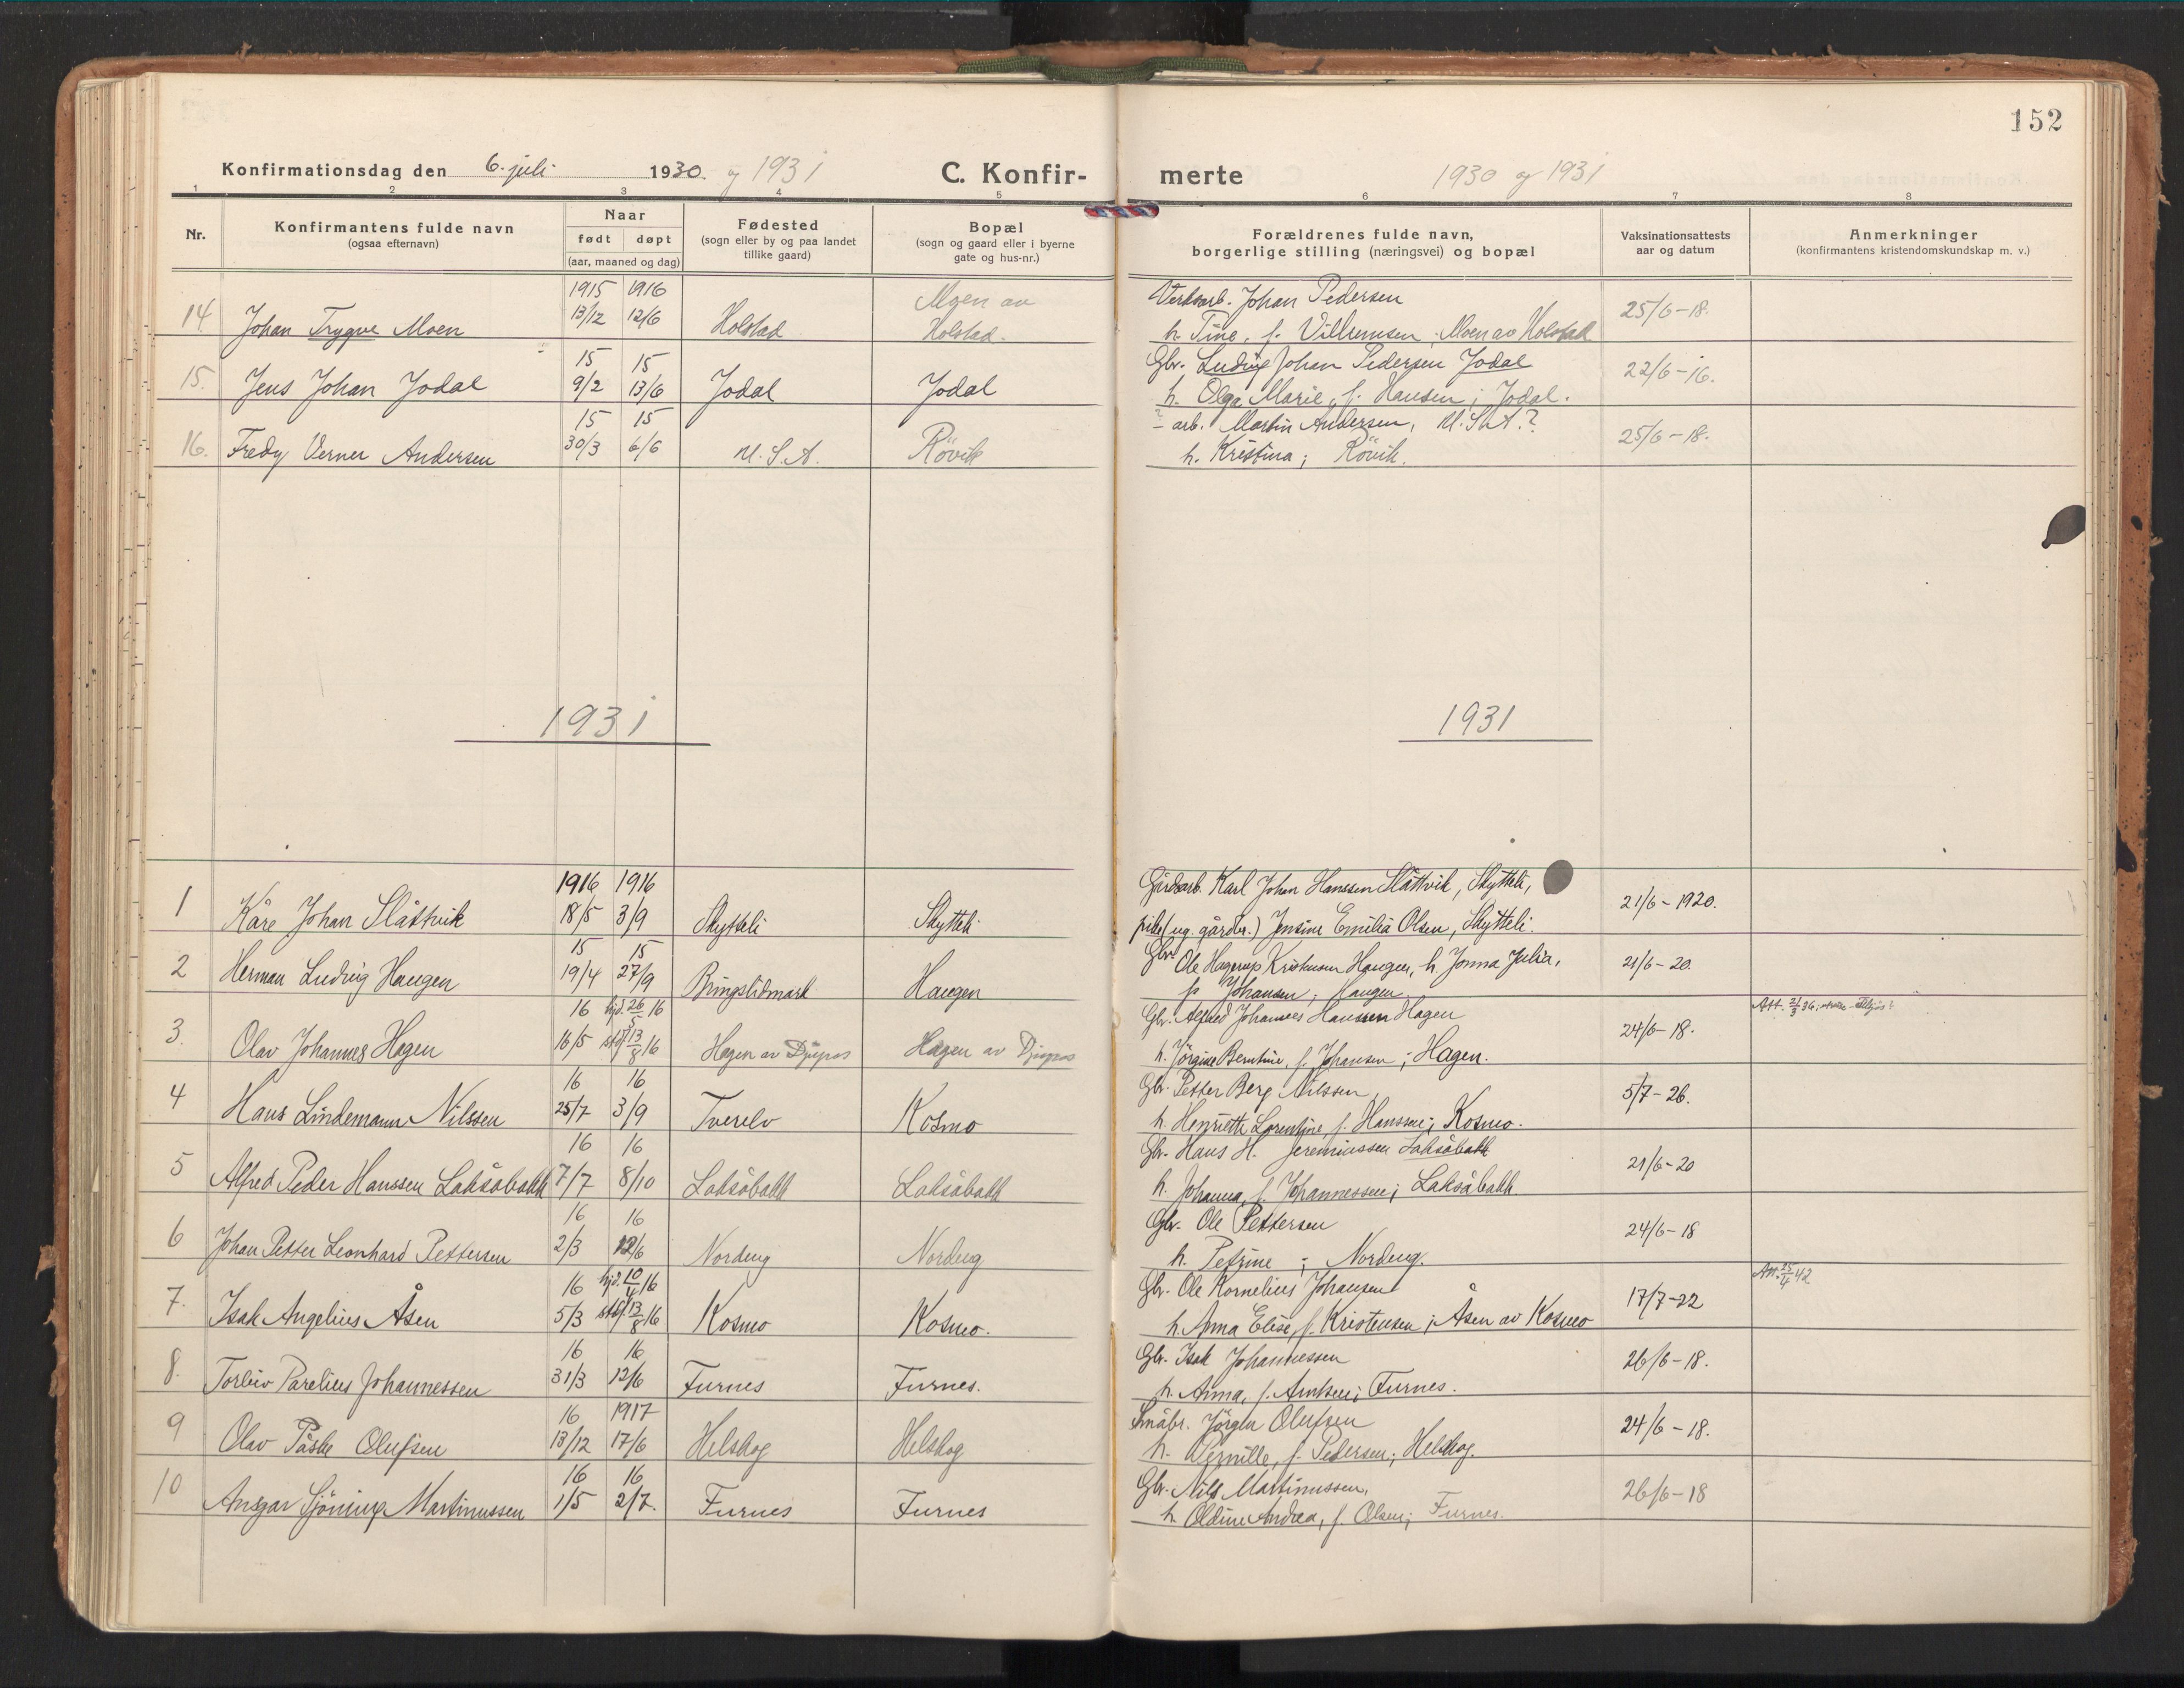 152
Konfirmationsdag den 6. juli 1930. og 1931 C. Konfir-
merte 1930 og 1931
1 2 3 4 5 6 7 8
Nr.
Konfirmantens fulde navn
(ogsaa efternavn)
Naar
født døpt
(aar, maaned og dag)
Fødested
(sogn eller by og paa landet
tillike gaard)
Bopæl
(sogn og gaard eller i byerne
gate og hus-nr.)
Forældrenes fulde navn,
borgerlige stilling (næringsvei) og bopæl
Vaksinationsattests
aar og datum
Anmerkninger
(konfirmantens kristendomskundskap m. v.)
1915 1916 Moen av Verksarb. Johan Pedersen
14 Johan Trygve Moen 13/12 12/6 Holstad Holstad. h. Tine, f. Villumsen; Moen av Holstad 25/6-18.
15 15 Gbr. Ludvig Johan Pedersen Jodal
15. Jens Johan Jodal 9/2 13/6 Jodal Jodal h. Olga Marie, f. Hansen; Jodal. 22/6-16.
15 15 ? arb. Martin Andersen, U.S.A.?
16. Fredy Verner Andersen 30/3 6/6 U.S.A. Rövik h. Kristina; Rövik. 25/6-18.
1931 1931
1916 1916 Gårdsarb. Karl Johan Hanssen Slåttvik, Skytteli,
1 Kåre Johan Slåttvik 18/5 3/9 Skytteli Skytteli pike (ug. gårdbr.) Jensine Emilie Olsen, Skytteli. 21/6-1920.
15 15 Gbr. Ole Hagerup Kristensen Haugen, h. Jonna Julia,
2 Herman Ludvig Haugen 19/4 27/9 Bringslidmark Haugen f. Johansen; Haugen 21/6-20.
16 hjd. 26/5 16 Gbr. Alfred Johannes Hanssen Hagen Att. 21/3 36
3. Olav Johannes Hagen 16/5 stdf. 13/8 16 Hagen av Djupos Hagen av Djupos h. Jörgine Berntine, f. Johansen; Hagen. 24/6-18.
16 16 Gbr. Petter Berg Nilssen
4 Hans Lindemann Nilssen 25/7 3/9 Tverelv Kosmo h. Henriette Lorentine, f. Hanssen; Kosmo. 5/7-26.
16 16 Gbr. Hans H. Jeremiassen Laksåbakk
5 Alfred Peder Hanssen Laksåbakk 7/7 8/10 Laksåbakk Laksåbakk h. Johanna, f. Johannessen; Laksåbakk. 21/6-20
16 16 Gbr. Ole Pettersen
6 Johan Petter Leonhard Pettersen 2/3 12/6 Nordeng Nordeng h. Petrine; Nordeng. 24/6-18
16 hjd. 10/4 16 Gbr. Ole Kornelius Johansen Att. 25/4 42
7. Isak Angelius Åsen 5/3 stdf. 13/8 16 Kosmo Kosmo. h. Anna Elise, f. Kristensen; Åsen av Kosmo 17/7-22
16 16 Gbr. Isak Johannessen
8. Torleiv Parelius Johannessen 31/3 12/6 Furnes Furnes. h. Anna, f. Arntsen; Furnes. 26/6-18.
16 1917 Småbr. Jörgen Olufsen
9 Olav Påske Olufsen 13/12 17/6 Helskog Helskog h. Pernille, f. Pedersen; Helskog. 24/6-18.
16 16 Gbr. Nils Martinussen,
10 Ansgar Sjöning Martinussen 1/5 2/7. Furnes Furnes h. Oldine Andrea, f. Olsen; Furnes. 26/6-18